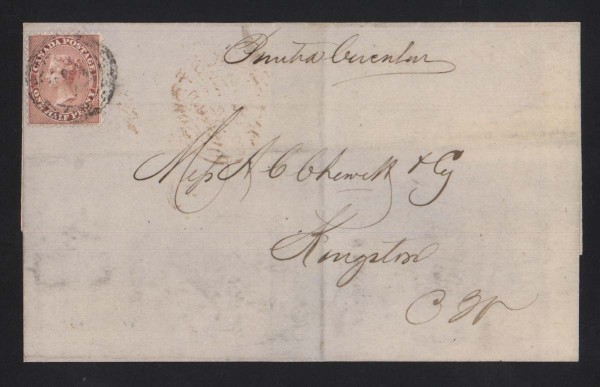 CANADA POSTAGE
ONE HALF PENNY
Printed Circular
Mess A C Chewett & Cy
Kingston
C W